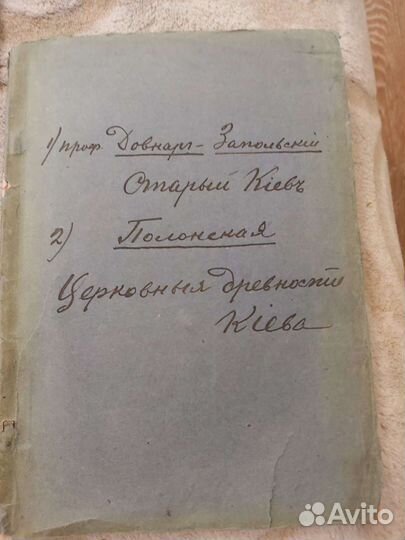 1) проф Довнаръ-Запольскій
Старый Кіевъ
2) Полонская
Церковныя древности
Кіева
Avito